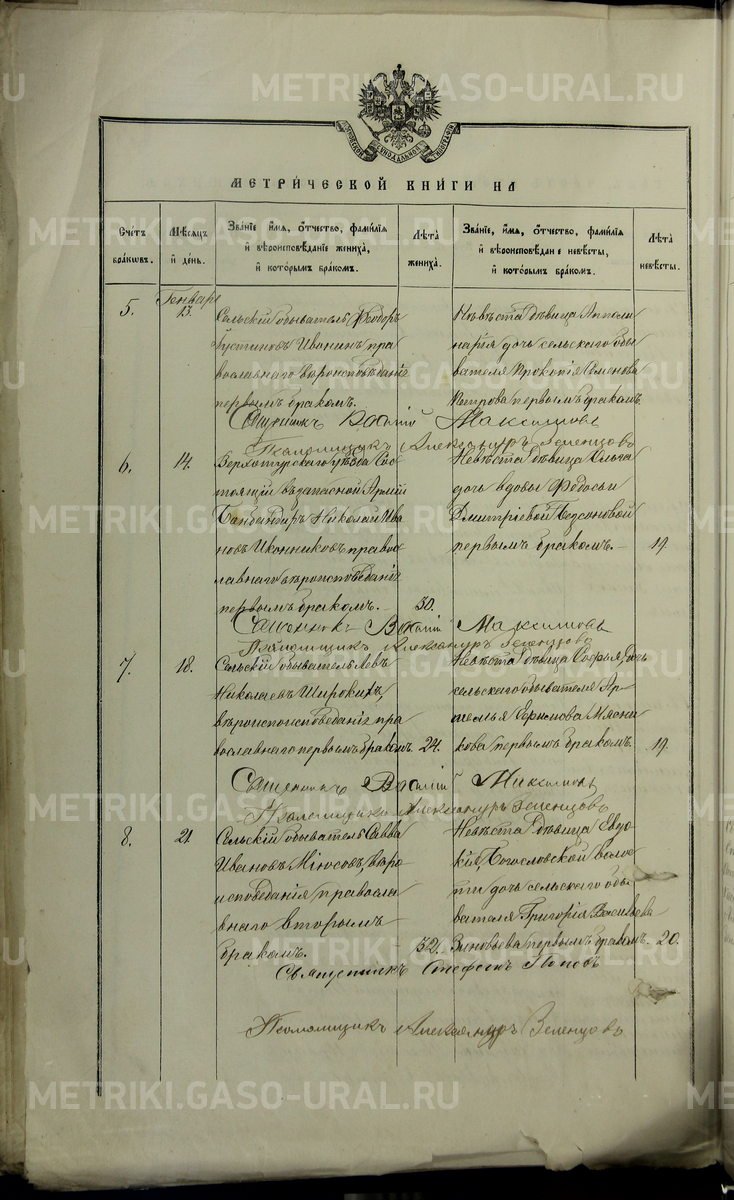 METRIKI.GASO-URAL.RU
МОСКОВСКОЙ СѴНОДАЛЬНОЙ ТИПОГРАФІИ
МЕТРИ́ЧЕСКОЙ КНИ́ГИ НА
Счетъ браковъ.
Мѣсяцъ и день.
Зва́нїе, и́мя, о́тчество, фами́лїя и вѣроисповѣ́данїе жениха́, и кото́рымъ бра́комъ.
Лѣта̀ жениха̀.
Зва́нїе, и́мя, о́тчество, фами́лїя и вѣроисповѣ́данїе невѣ́сты, и кото́рымъ бра́комъ.
Лѣта̀ невѣ́сты.
Генварь
5. 13.
Сельскій обыватель Ѳеодоръ
Іустиновъ Иванинъ, пра
вославнаго вѣроисповѣданія
первымъ бракомъ.
Невѣста дѣвица Апполи
нарія дочь сельскаго обы
вателя Прокопія Семенова
Петрова первымъ бракомъ.
Священникъ Василій Максимовъ
Псаломщикъ Александръ Зеленцовъ
6. 14.
Верхотурскаго уѣзда Сос
тоящій въ запасной Арміи
Бомбандиръ Николай Ива
новъ Иконниковъ правос
лавнаго вѣроисповѣданія
первымъ бракомъ.
30.
Невѣста дѣвица Ольга
дочь вдовы Ѳедосьи
Дмитріевой
первымъ бракомъ.
19.
Священникъ Василій Максимовъ
Псаломщикъ Александръ Зеленцовъ
7. 18.
Сельскій обыватель Левъ
Николаевъ Широкихъ,
вѣроисповѣданія пра
вославнаго первымъ бракомъ.
24.
Невѣста дѣвица Софья, дочь
сельскаго обывателя Ар
темья Ефимова Мясни
кова первымъ бракомъ.
19.
Священникъ Василій Максимовъ
Псаломщикъ Александръ Зеленцовъ
8. 21
Сельскій обыватель Савва
Ивановъ Мїюсовъ, вѣро
исповѣданія правосла
внаго вторымъ
бракомъ.
32.
Невѣста дѣвица Евдо
кія, Богословской волос
ти дочь сельскаго обы
вателя Григорія Васильева
Зиновьева первымъ бракомъ.
20.
Священникъ Стефанъ Поповъ
Псаломщикъ Александръ Зеленцовъ